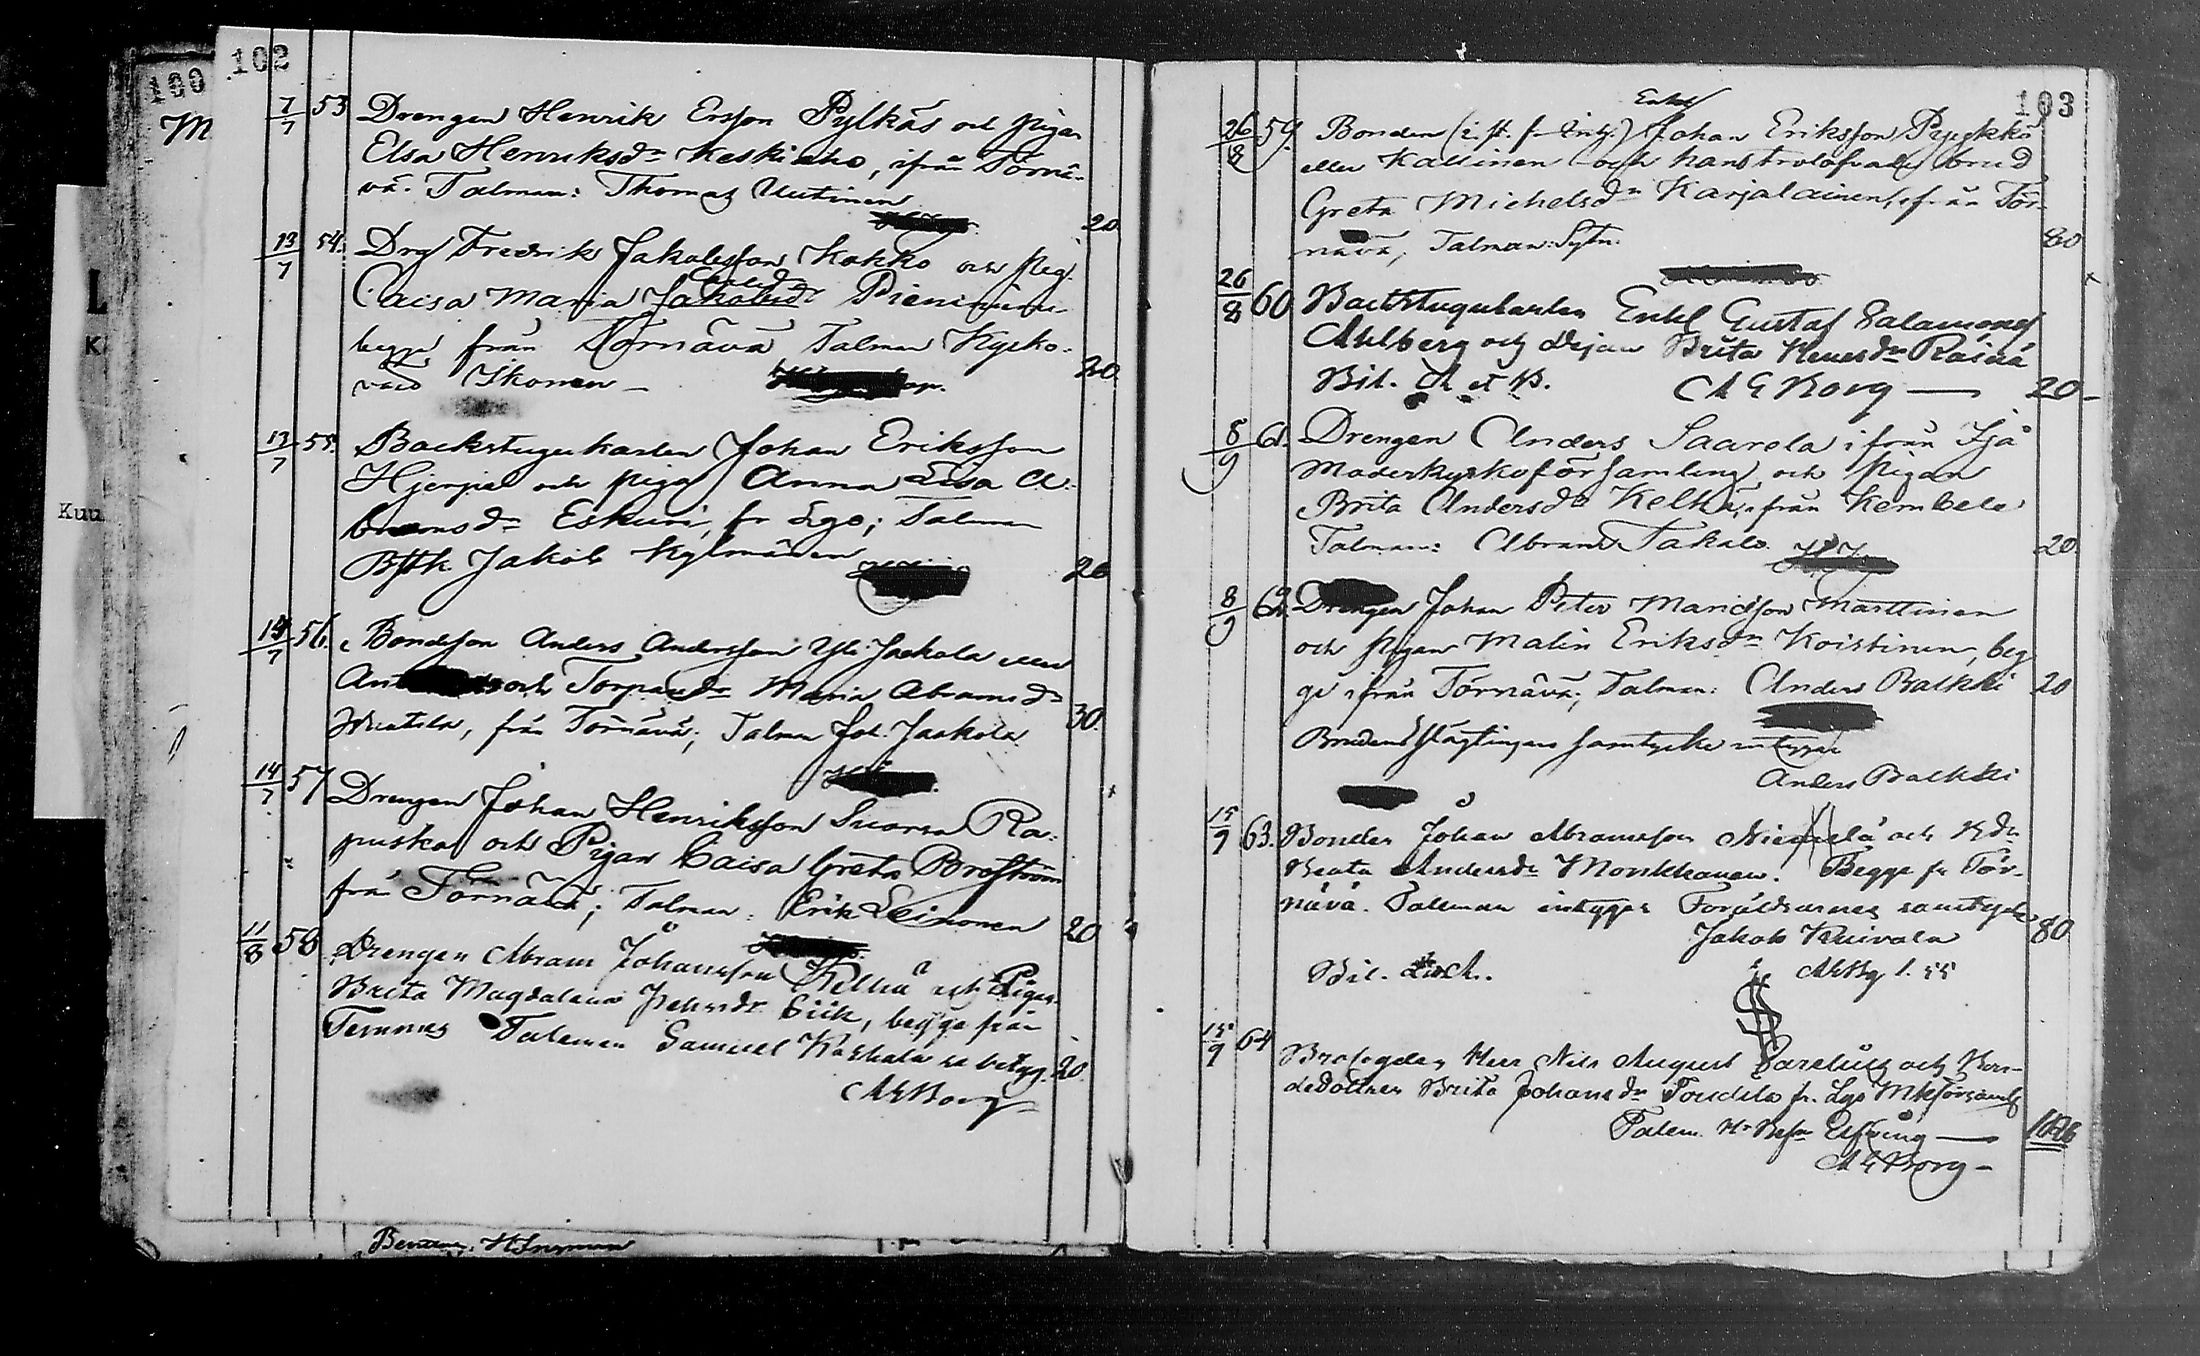 100
M
Kuu
L
K
102
7/7 53 Drengen Henrik Ersson Pylkäs och pigan
Elsa Henriksdr Keskiaho, ifrån Törnä-
vä. Talman: Thomas Uutinen
20
13/7 54. Drg Fredrik Jakobsson Kokko och pig.
Caisa Maria Jakobsdr
begge från Tornävä Talman Kyrko-
värd Ikonen —
20
13/7 55. Backstugukarlen Johan Eriksson
Hjerpe och piga Anna Lisa A-
bramsdr Eskuri, fr Lgo; Talman
Bstk. Jakob Kylmänen
20
14/7 56. Bondeson Anders Andersson Yli Jaakola eller
An och Torparedr Maria Abramsdr
från Tornävä; Talman Joh. Jaakola
30.
14/7 57 Drengen Johan Henriksson Suorsa Ra-
puska och Pigan Caisa Greta Broström
från Tornävä; Talman: Erik Leinonen
20
11/8 58 Drengen Abram Johansson Kelhä och Pigan
Brita Magdalena begge från
Temmes Talman Samuel
20
AEBorg
Benämn. H. Ingman
103
Enkel
26/8 59. Bonden Johan Eriksson Pyykkö
eller Kallinen och hans trolofvade brud
Greta Michelsdr Karjalainen, ifrån Tör-
nävä, Talman: Sytn.
80
26/8 60 Backstugukarlen Enkl Gustaf Salamons
Ahlberg och Pigan Brita
Bil. A et B. AEBorg —
20 -
8/9 61. Drengen Anders Saarela ifrån Ijå
Moderkyrkoförsamling, och pigan
Brita Andersdr Kelhä, ifrån Kembele
Talman: Abram Takalo.
20.
8/9 62. Drengen Johan Peter Martinen
och pigan Malin Eriksdr Koistinen, beg
ge ifrån Tornävä; Talman: Anders Balkki
20
Brudens slägtingars samtycke intygar
Anders Balkki
15/9 63. Bonden Johan Abramsson Niemelä och Bdr
Beata Andersdr Monkkonen. Begge fr Tör-
nävä. Talman intygar Föräldrarnes samtycke
Jakob Kuivala
80
Bil. AEBg 1. 55
15/9 64 Brofogden Herr Nils August och Bon-
dedottren Brita Johansdr fr. Lgo Mkförsaml
Talm.
AEBorg -